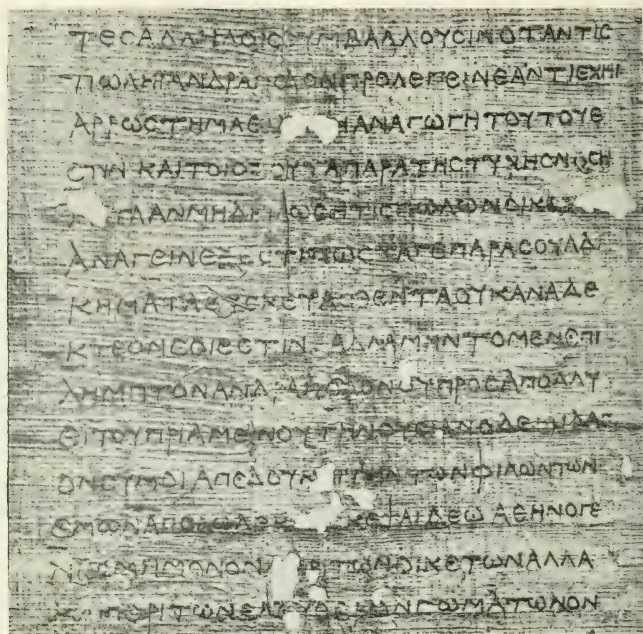 ΤΕΣΑΛΛΗΛΟΙΣΣΥΜΒΑΛΛΟΥΣΙΝΟΤΑΝΤΙΣ
ΠΩΛΗΙΑΝΔΡΑΠΟΔΟΝΠΡΟΛΕΓΕΙΝΕΑΝΤΙΕΧΗΙ
ΑΡΡΩΣΤΗΜΑΕΙ ΗΑΝΑΓΩΓΗΤΟΥΤΟΥΕ
ΣΤΙΝ ΚΑΙΤΟΙΟΠΟΤΕΤΑΠΑΡΑΤΗΣΤΥΧΗΣΝΟΣΗ
ΑΤΑΑΝΜΗΔΗΛΩΣΗΤΙΣΠΩΛΩΝΟΙΚΕ
ΑΝΑΓΕΙΝΕΞΕΣΤΙΠΩΣΤΑΓΕΠΑΡΑΣΟΥΑΔΙ
ΚΗΜΑΤΑΣΥΣΚΕΥΑΣΘΕΝΤΑΟΥΚΑΝΑΔΕ
ΚΤΕΟΝΣΟΙΕΣΤΙΝ ΑΛΛΑΜΗΝΤΟΜΕΝΕΠΙ
ΛΗΜΠΤΟΝΑΝΔΡΑΠΟΔΟΝΟΥΠΡΟΣΑΠΟΛΛΥ
ΕΙΤΟΥΠΡΙΑΜΕΝΟΥΤΗΝΟΥΣΙΑΝΟΔΕΜΙΔΑΣ
ΟΝΣΥΜΟΙΑΠΕΔΟΥΚΑΙΤΗΝΤΩΝΦΙΛΩΝΤΩΝ
ΕΜΩΝΑΠΟΛΩΛΕΚΕ ΚΕΨΑΙΔΕΩΑΘΗΝΟΓΕ
ΝΕΣΜΗΜΟΝΟΝ ΠΕΡΙΤΩΝΟΙΚΕΤΩΝΑΛΛΑ
ΚΑΙΠΕΡΙΤΩΝΕΛΕΥΘΕΡΩΝΣΩΜΑΤΩΝΟΝ